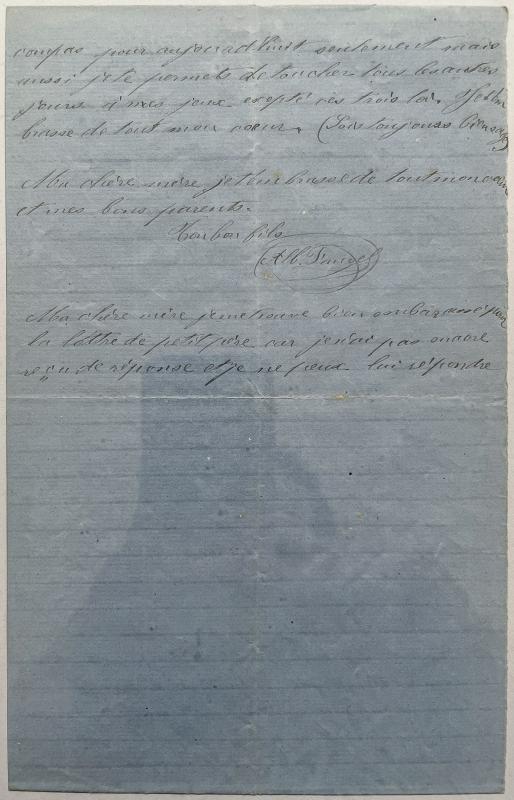 compas pour aujouradhuit seulement mais
aussi je te permets de toucher tous les autres
jours à mes jeux excepté ces trois loi. Je t'em
brasse de tout mon coeur. (Sois toujours bien sage)
Ma chère mère je t'embrasse de tout mon coeur
et mes bons parents.
Ton bon fils
Alb.
Ma chère mère je me trouve bien embarassé pour
la lettre de petit père car je n'ai pas encore
reçu de réponse et je ne peux lui répondre